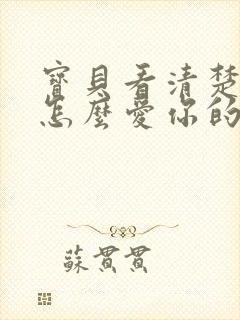 寶貝看清楚
怎麼愛你的
蘇貫貫